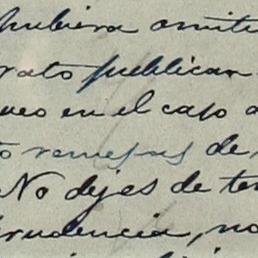 hubiera omiti
rato publicar
veo en el caso d
remesas de
No dejes de te
rudencia, no